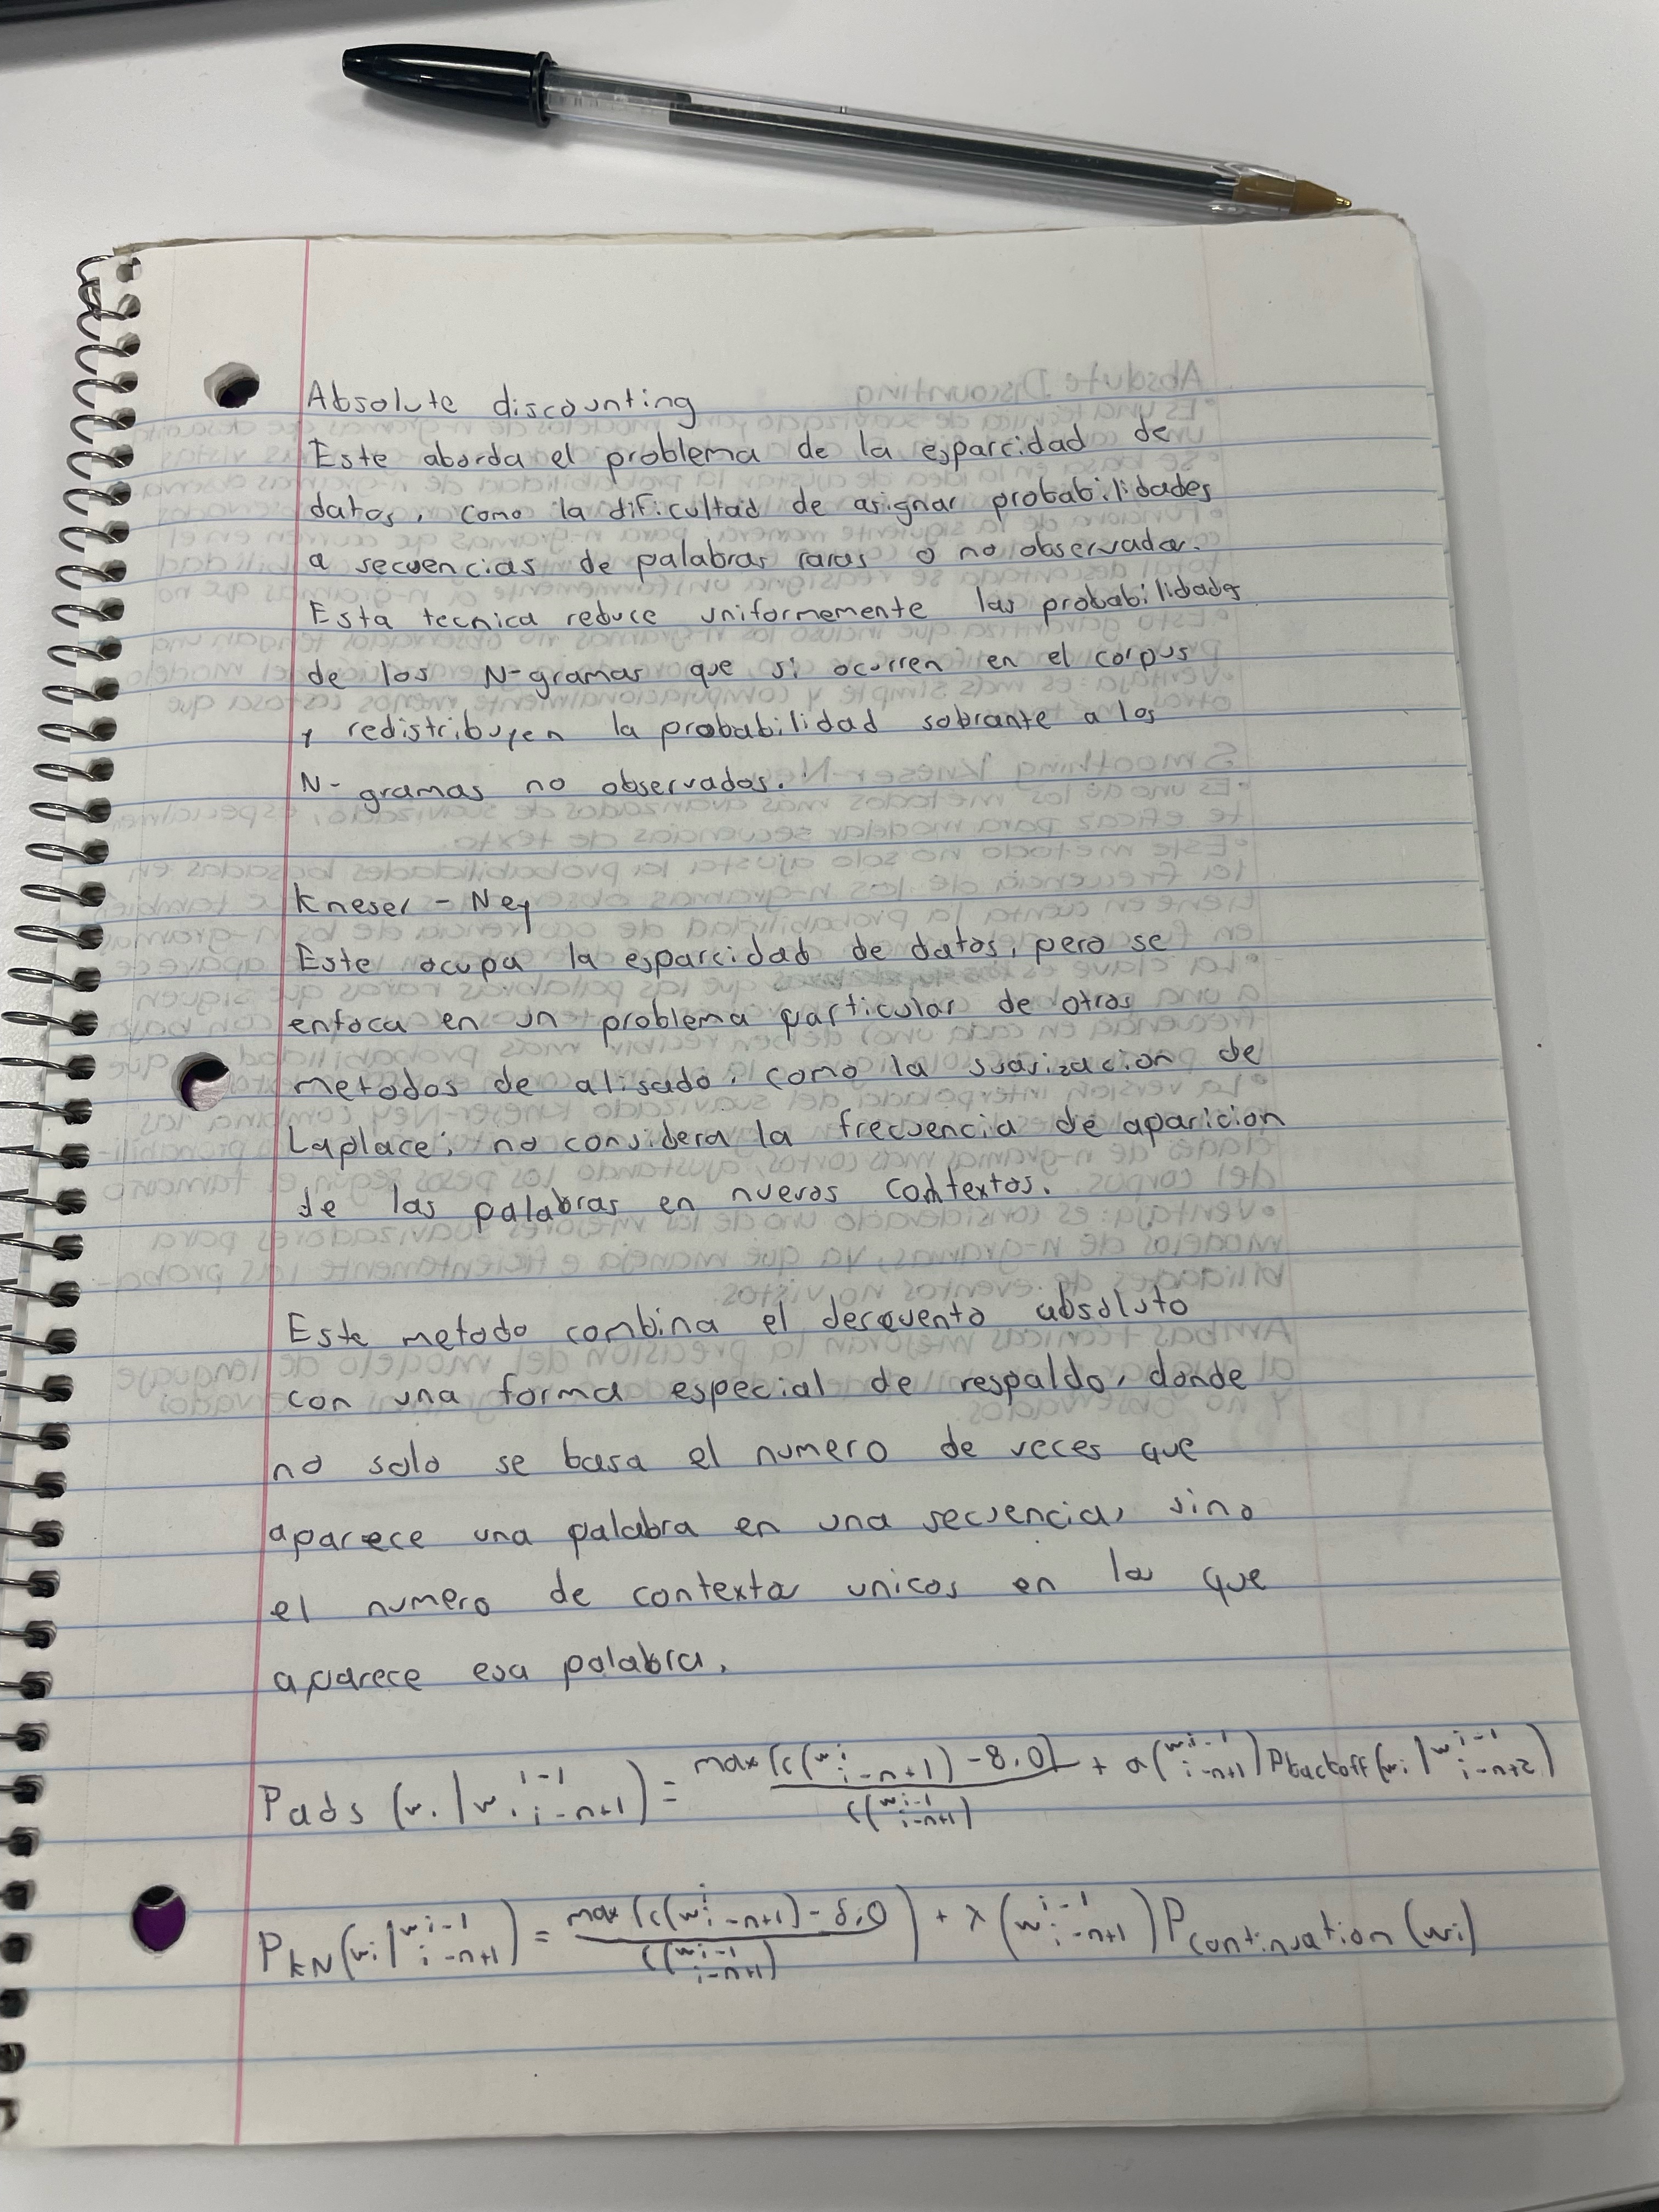 Absolute discounting
Este aborda el problema de la esparcidad de
datos, como la dificultad de asignar probabilidades
a secuencias de palabras raras o no observadas.
Esta tecnica reduce uniformemente las probabilidades
de los N-gramas que si ocurren en el corpus
y redistribuyen la probabilidad sobrante a los
N-gramas no observados.
Kneser-Ney
Este ocupa la esparcidad de datos, pero se
enfoca en un problema particular de otros
metodos de alisado, como la suavizacion de
Laplace; no considera la frecuencia de aparicion
de las palabras en nuevos contextos.
Este metodo combina el descuento absoluto
con una forma especial de respaldo, donde
no solo se basa el numero de veces que
aparece una palabra en una secuencia, sino
el numero de contextos unicos en los que
aparece esa palabra.
Pads (w_i | w_{i-n+1}^{i-1}) = max(c(w_{i-n+1}^{i}) - 8,0) / c(w_{i-n+1}^{i-1}) + a(w_{i-n+1}^{i-1}) Pbackoff(w_i | w_{i-n+2}^{i-1})
P_{KN}(w_i | w_{i-n+1}^{i-1}) = max(c(w_{i-n+1}^{i}) - δ,0) / c(w_{i-n+1}^{i-1}) + λ(w_{i-n+1}^{i-1}) P_{continuation}(w_i)